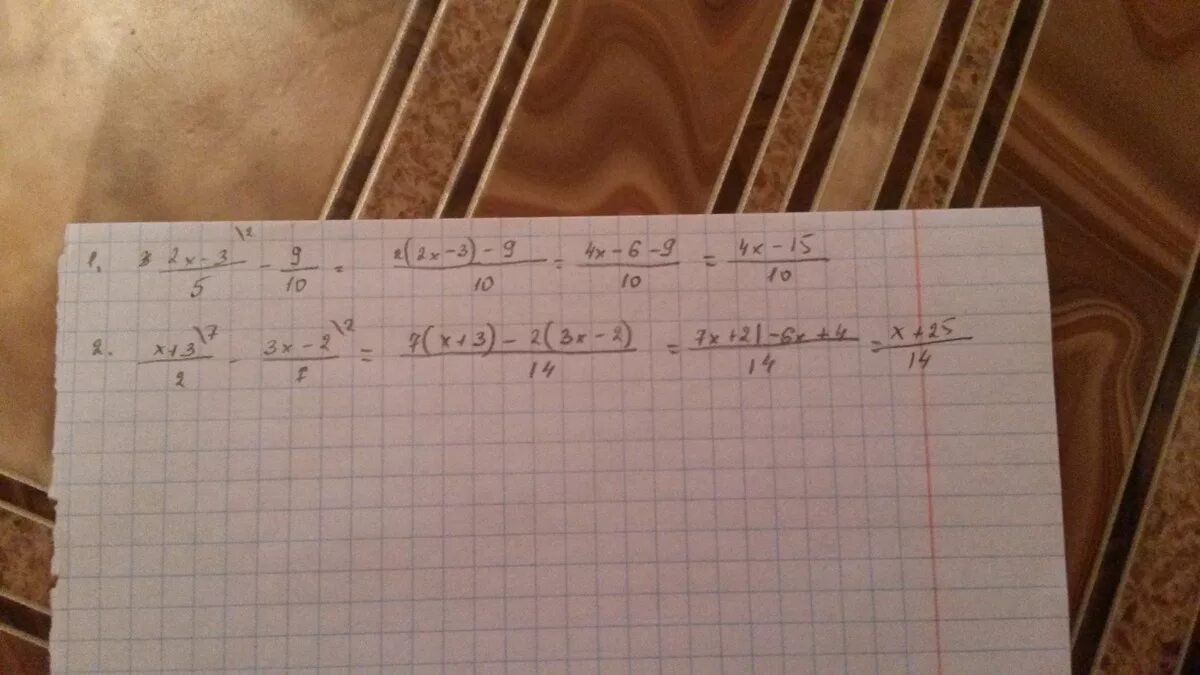 1. (2x-3)\2/5 - 9/10 = (2(2x-3)-9)/10 = (4x-6-9)/10 = (4x-15)/10
2. (x+3)\7/2 - (3x-2)\2/7 = (7(x+3)-2(3x-2))/14 = (7x+21-6x+4)/14 = (x+25)/14